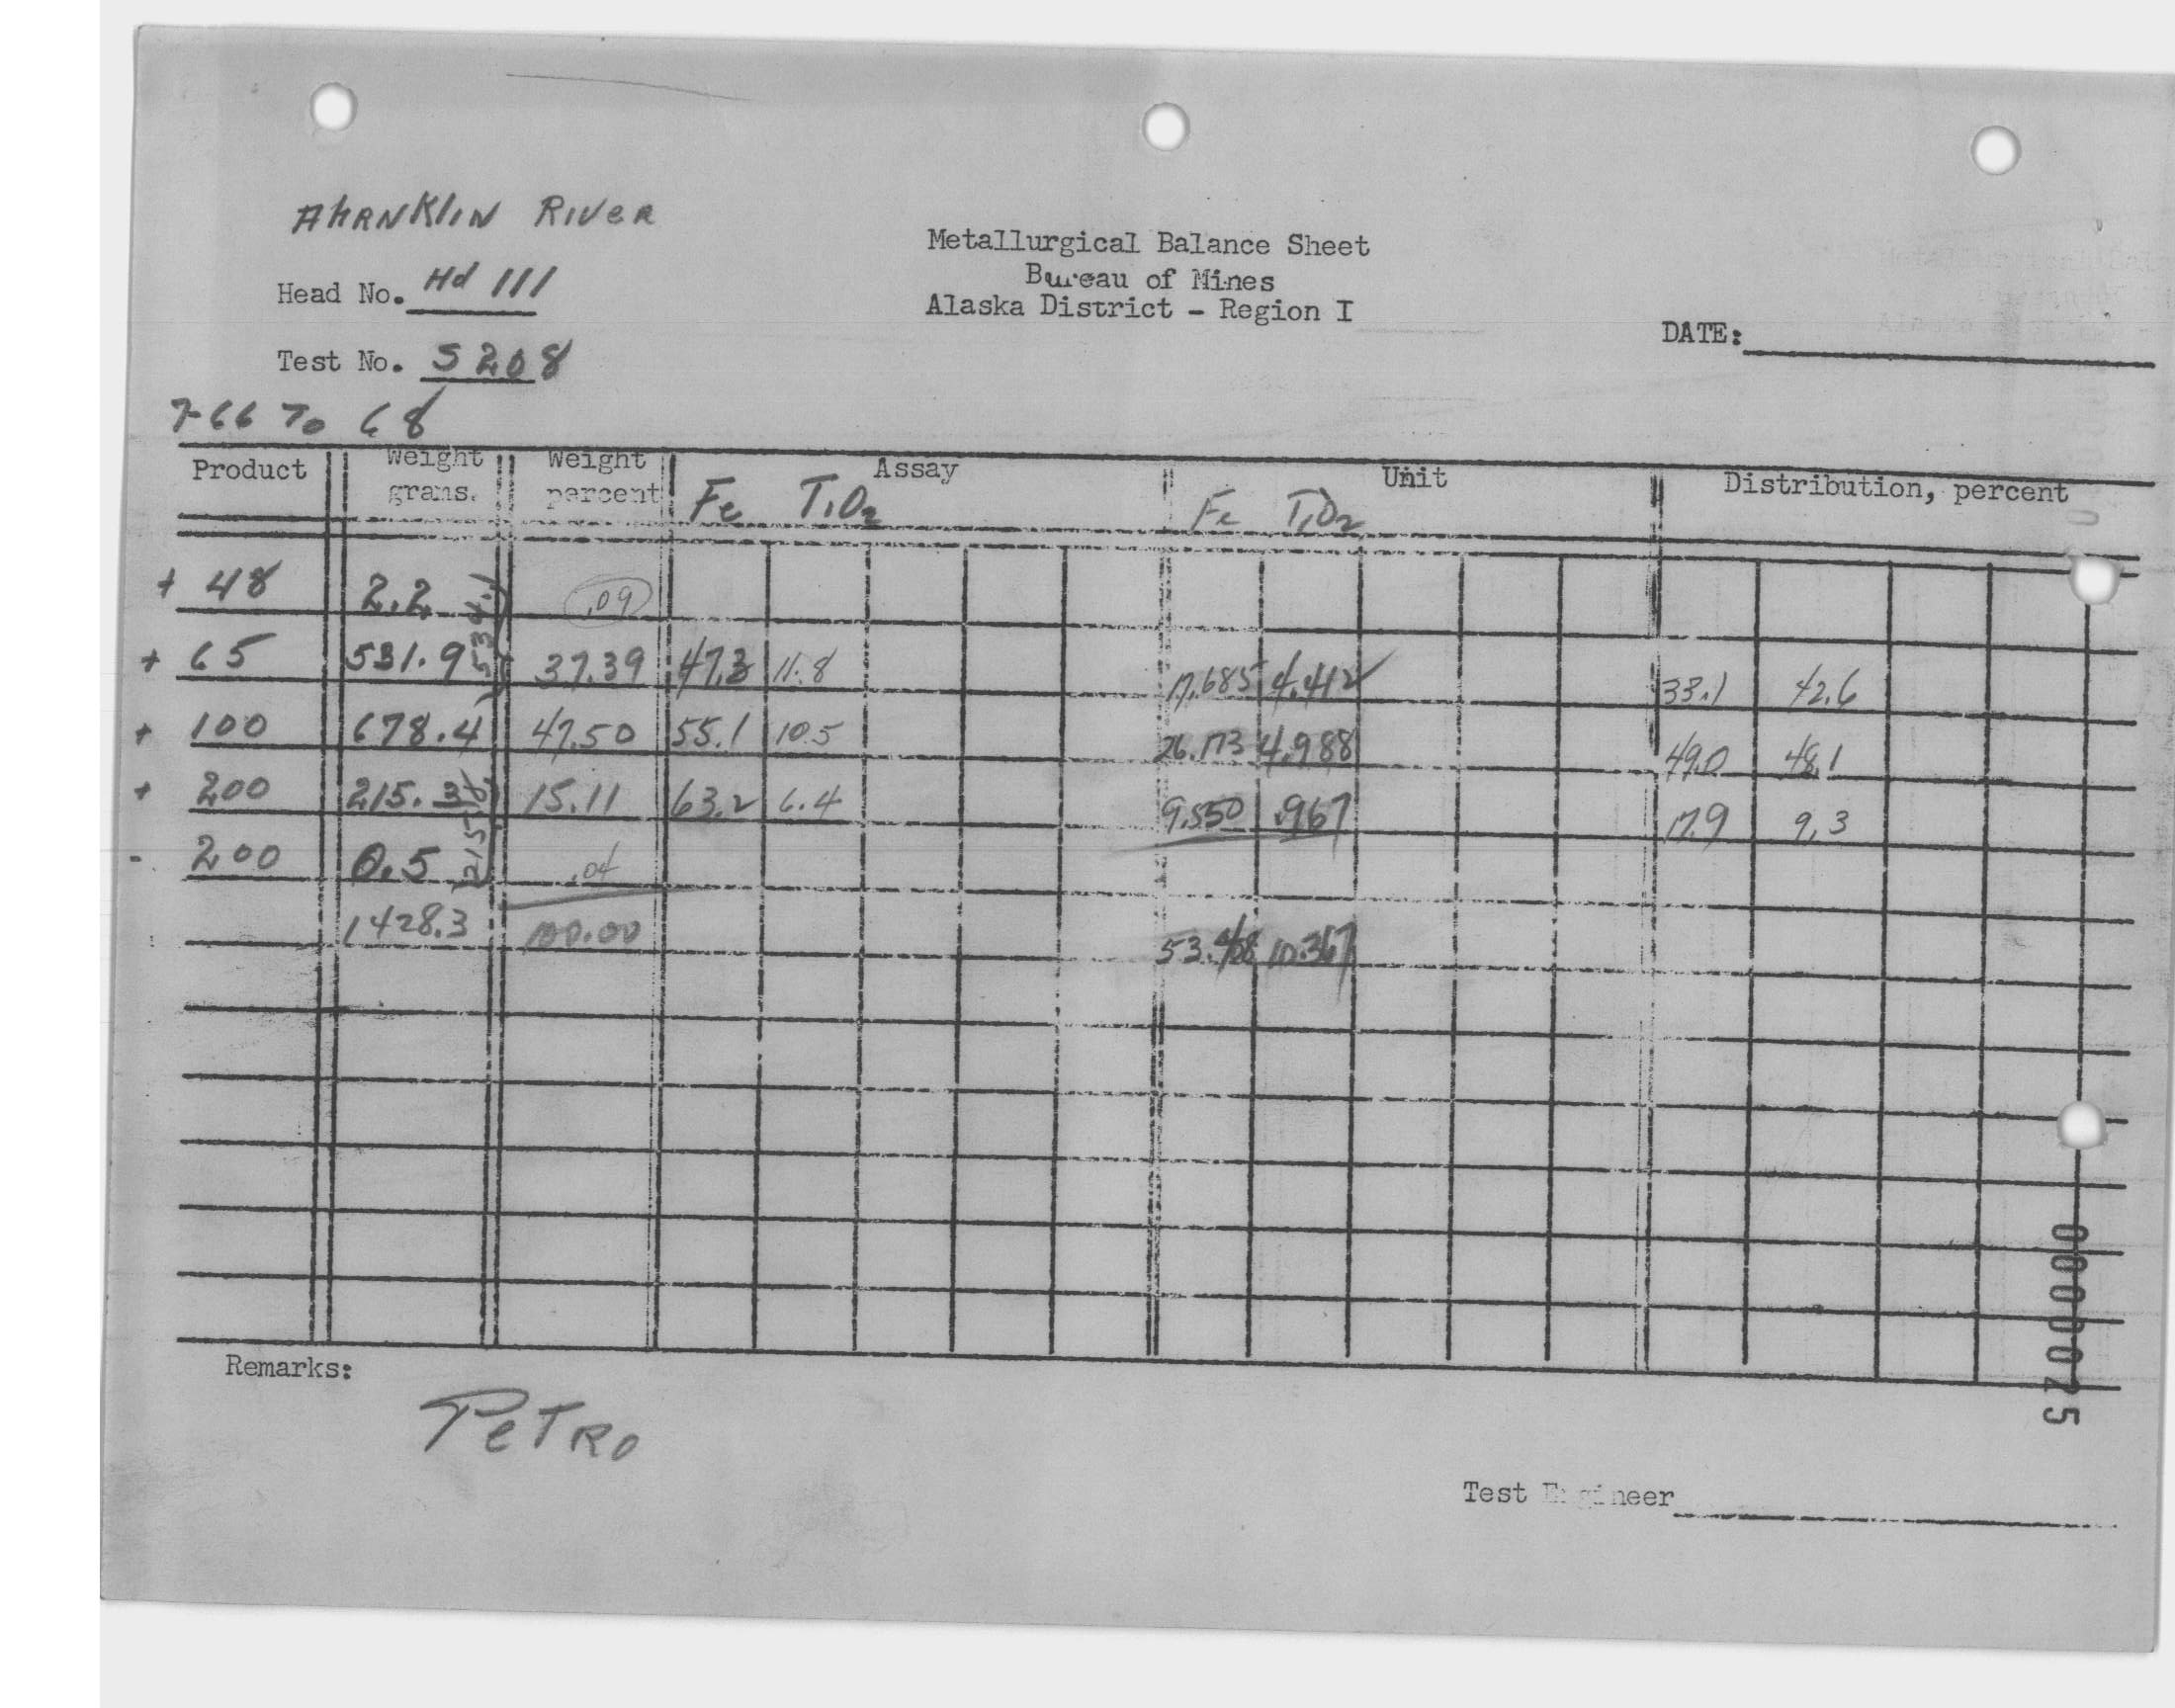 AHRNKLIN RIVER
Metallurgical Balance Sheet
Head No. Hd 111
Bureau of Mines
Alaska District - Region I
DATE:
Test No. S208
7-66 To 68
Product Weight grams. Weight percent Assay Unit Distribution, percent
Fe TiO2 Fe TiO2
+ 48 2.2 .09
534.1
+ 65 531.9 37.39 47.3 11.8 17.685 4.412 33.1 42.6
+ 100 678.4 47.50 55.1 10.5 26.173 4.988 49.0 48.1
+ 200 215.3 15.11 63.2 6.4 9.550 .967 17.9 9.3
- 200 0.5 .04
1428.3 100.00 53.408 10.367
Remarks:
PETRO
Test Engineer
0000025